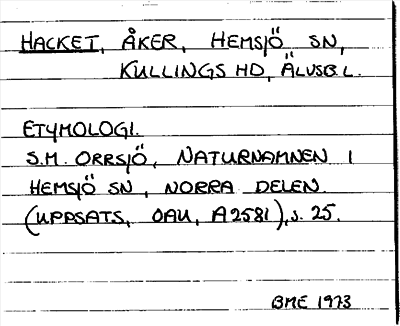 HACKET, ÅKER, HEMSJÖ SN,
KULLINGS HD, ÄLVSB. L.
ETYMOLOGI.
S.M. ORRSJÖ, NATURNAMNEN I
HEMSJÖ SN, NORRA DELEN.
(UPPSATS, OAU, A2581), s. 25.
BME 1973